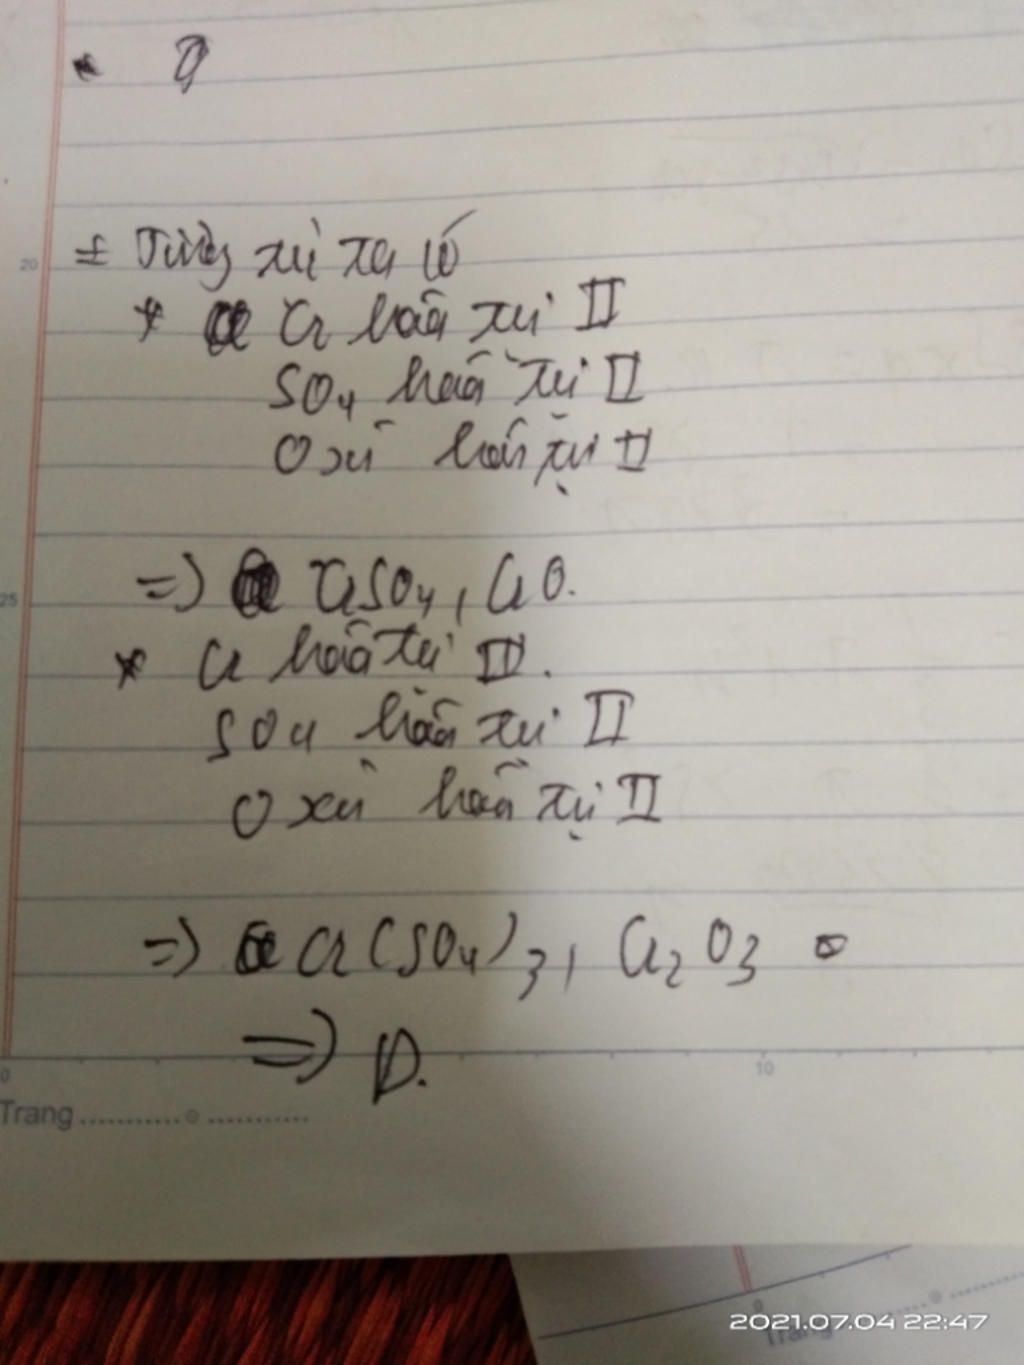 20
* Cr hoá trị II
SO4 hoá trị II
Oxi hoá trị II
25
=> CrSO4, CrO.
* Cr hoá trị III.
SO4 hoá trị II
Oxi hoá trị II
=> Cr(SO4)3, Cr2O3
=> D.
0 10
Trang
2021.07.04 22:47
Trang